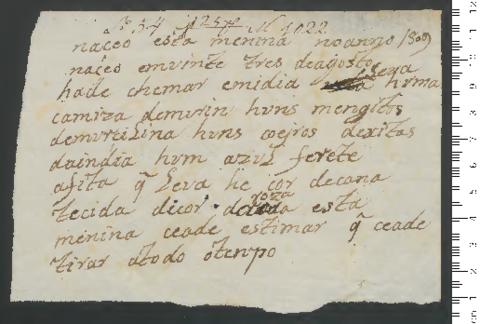 Nº 54 1254 M 1022
naceo esta menina noanno 1809
naceo emvinte tres deagosto
hade chemar emidia Leva huma
camiza demurin huns mengitos
demurselina huns coejros dexitas
daindia hum azul ferete
afita q Leva he cor decana
tecida dicor de roza esta
menina ceade estimar q ceade
tirar atodo otenpo